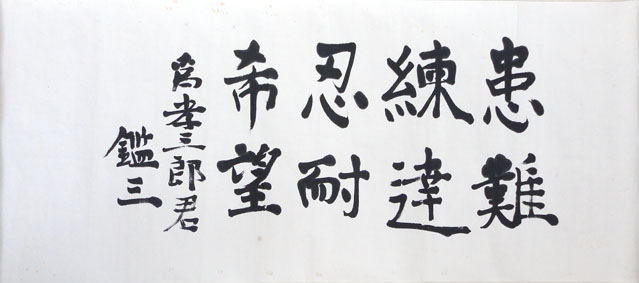 患難
練達
忍耐
希望
為孝三郎君
鑑三